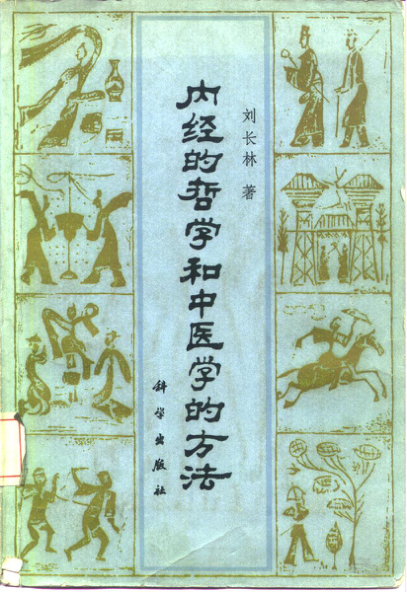 内经的哲学和中医学的方法
刘长林 著
科学出版社